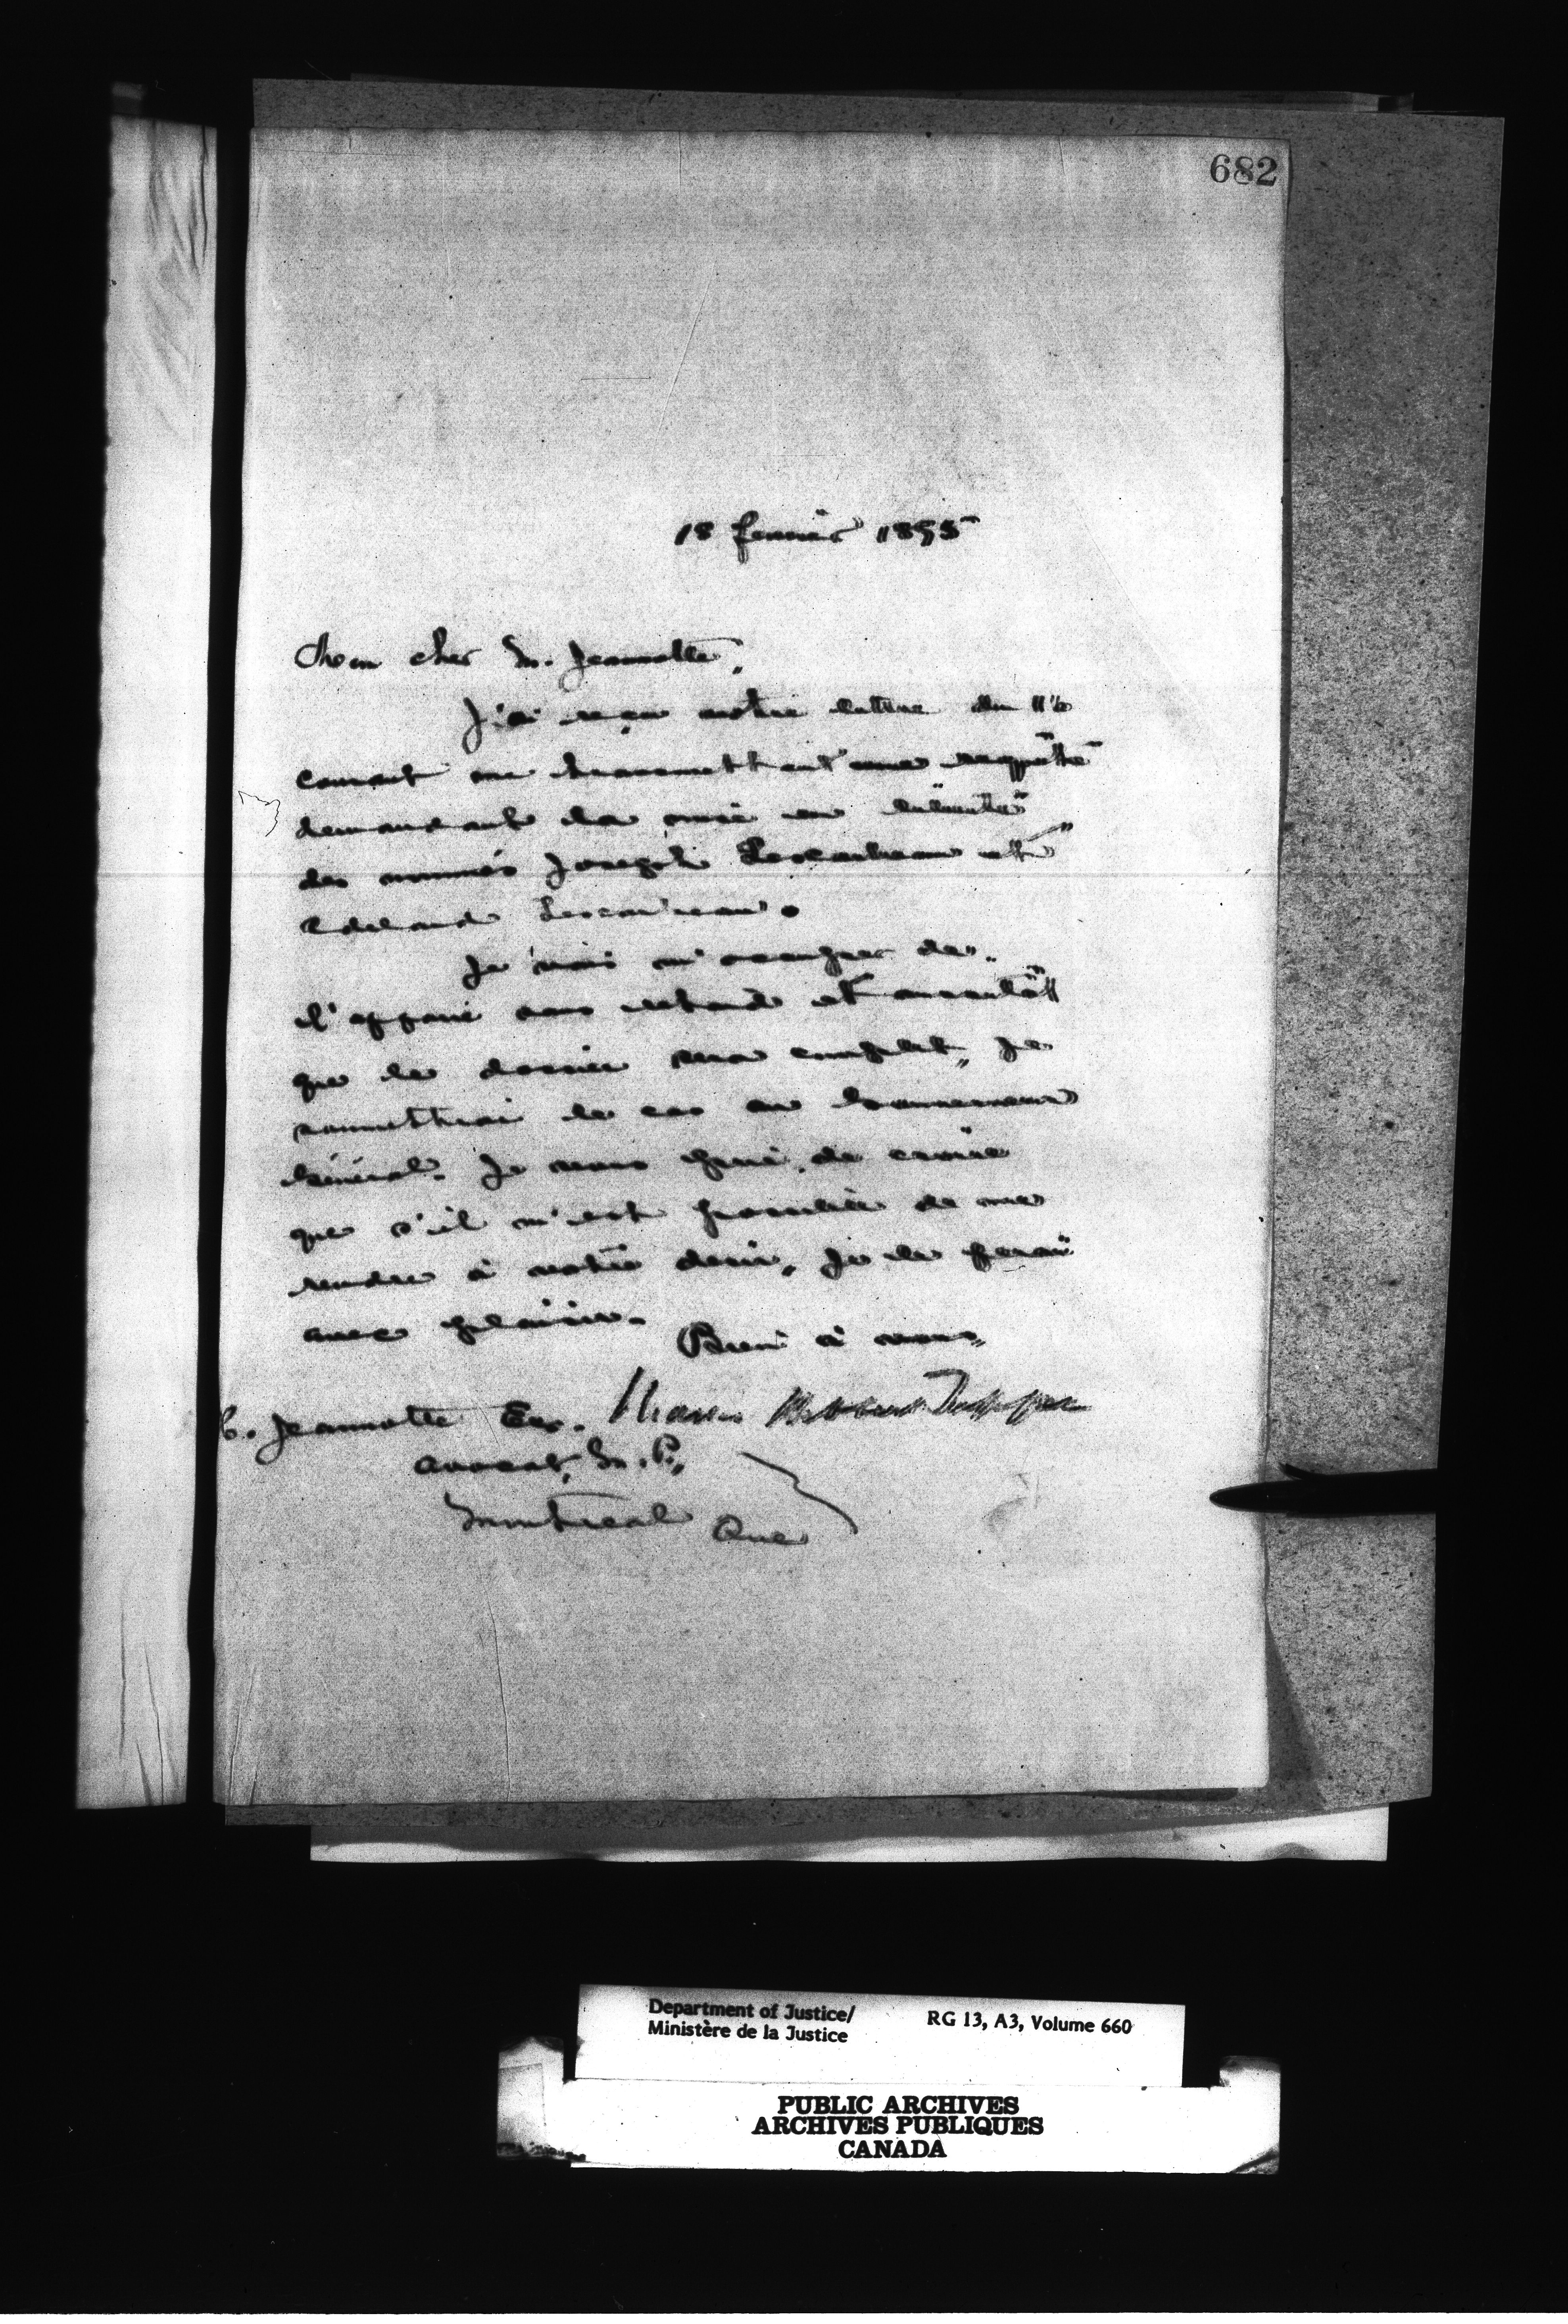 682
18 fevrier 1895
Mon cher M. Jeannotte,
J'ai reçu votre lettre du
courant me transmettant une requête
demandant la mise en liberté
des nommés Joseph Lescarbeau et
Lescarbeau.
Je vais m'occuper de
l'affaire sans retard et aussitôt
que le dossier sera complet, je
soumettrai le cas au Gouverneur
Général. Je vous prie de croire
que s'il m'est possible de me
rendre à votre desir, je le ferai
avec plaisir.
Bien à vous,
Charles Hibbert Tupper
Jeannotte Ecr.
avocat, M.P.,
Montreal Que
Department of Justice/
Ministère de la Justice
RG 13, A3, Volume 660
PUBLIC ARCHIVES
ARCHIVES PUBLIQUES
CANADA